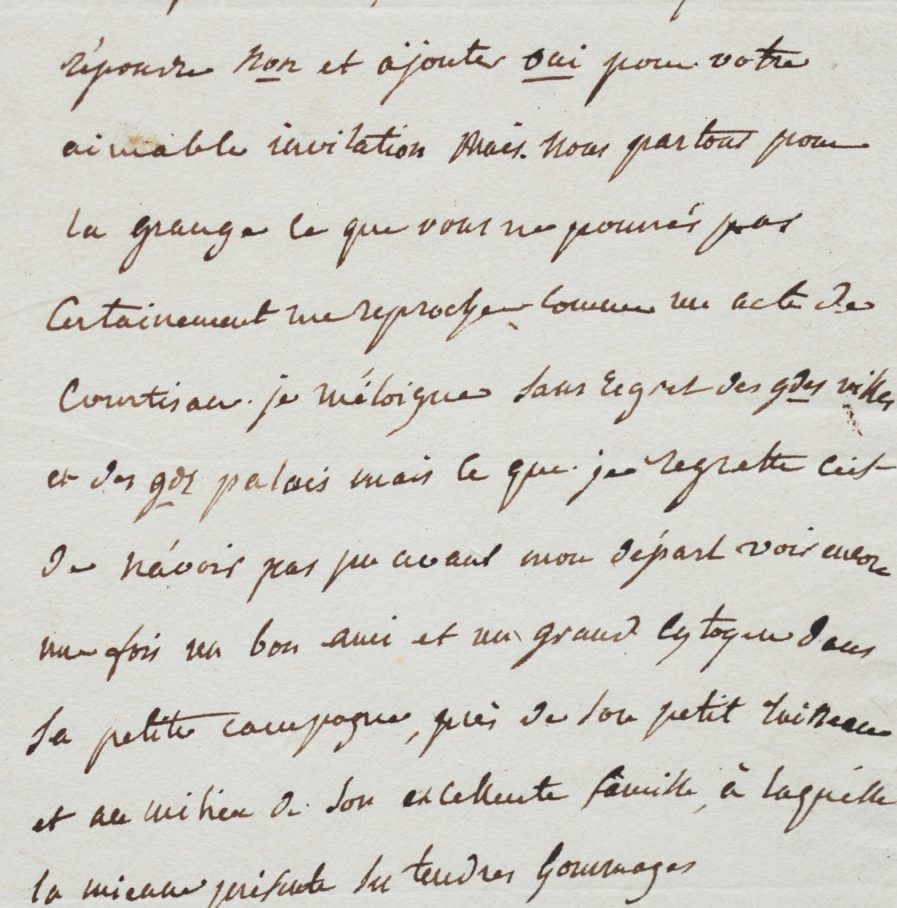 répondre non et ajouter oui pour votre
aimable invitation Mais. Nous partons pour
la grange ce que vous ne pourrés pas
Certainement me reprocher comme un acte de
Courtisan. je m'éloigne sans regret des gdes villes
et des gds palais mais ce que je regrette c'est
de n'avoir pas pu avant mon départ voir encore
une fois un bon ami et un grand Cytoyen dans
sa petite campagne, près de son petit ruisseau
et au milieu de son excellente famille, à laquelle
la mienne présente ses tendres hommages